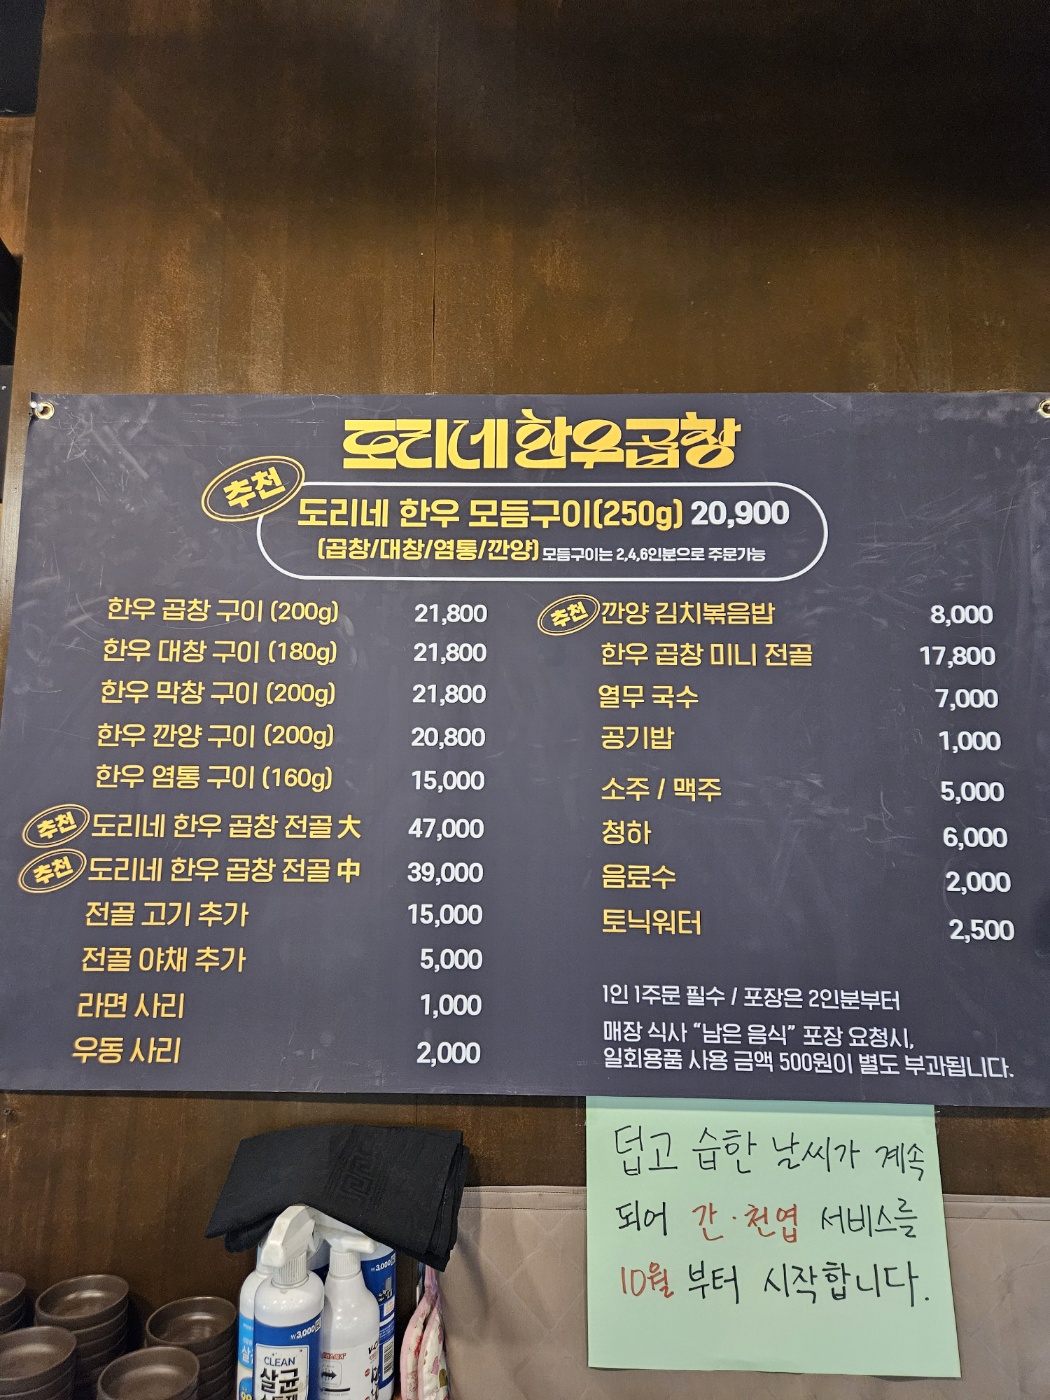 도리네 한우곱창
추천
도리네 한우 모듬구이(250g) 20,900
(곱창/대창/염통/깐양) 모듬구이는 2,4,6인분으로 주문가능
한우 곱창 구이 (200g) 21,800
한우 대창 구이 (180g) 21,800
한우 막창 구이 (200g) 21,800
한우 깐양 구이 (200g) 20,800
한우 염통 구이 (160g) 15,000
추천 도리네 한우 곱창 전골 大 47,000
추천 도리네 한우 곱창 전골 中 39,000
전골 고기 추가 15,000
전골 야채 추가 5,000
라면 사리 1,000
우동 사리 2,000
추천 깐양 김치볶음밥 8,000
한우 곱창 미니 전골 17,800
열무 국수 7,000
공기밥 1,000
소주 / 맥주 5,000
청하 6,000
음료수 2,000
토닉워터 2,500
1인 1주문 필수 / 포장은 2인분부터
매장 식사 “남은 음식” 포장 요청시,
일회용품 사용 금액 500원이 별도 부과됩니다.
덥고 습한 날씨가 계속
되어 간·천엽 서비스를
10월 부터 시작합니다.
₩3,000
₩3,000
CLEAN
살균